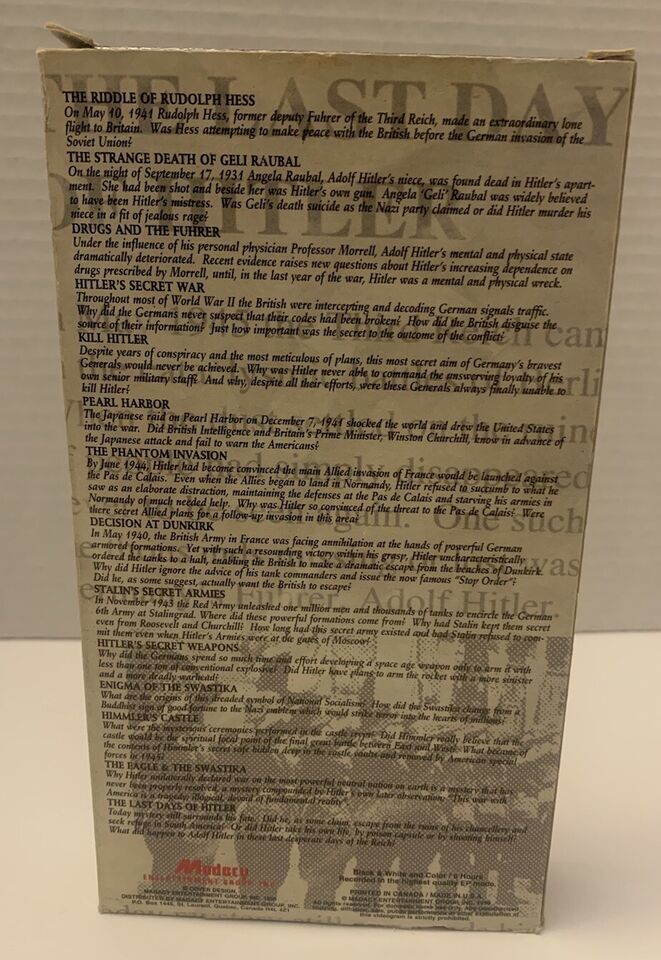 THE LAST DAY
OF HITLER
THE RIDDLE OF RUDOLPH HESS
On May 10, 1941 Rudolph Hess, former deputy Fuhrer of the Third Reich, made an extraordinary lone
flight to Britain. Was Hess attempting to make peace with the British before the German invasion of the
Soviet Union?
THE STRANGE DEATH OF GELI RAUBAL
On the night of September 17, 1931 Angela Raubal, Adolf Hitler's niece, was found dead in Hitler's apart-
ment. She had been shot and beside her was Hitler's own gun. Angela 'Geli' Raubal was widely believed
to have been Hitler's mistress. Was Geli's death suicide as the Nazi party claimed or did Hitler murder his
niece in a fit of jealous rage?
DRUGS AND THE FUHRER
Under the influence of his personal physician Professor Morrell, Adolf Hitler's mental and physical state
dramatically deteriorated. Recent evidence raises new questions about Hitler's increasing dependence on
drugs prescribed by Morrell, until, in the last year of the war, Hitler was a mental and physical wreck.
HITLER'S SECRET WAR
Throughout most of World War II the British were intercepting and decoding German signals traffic.
Why did the Germans never suspect that their codes had been broken? How did the British disguise the
source of their information? Just how important was the secret to the outcome of the conflict?
KILL HITLER
Despite years of conspiracy and the most meticulous of plans, this most secret aim of Germany's bravest
Generals would never be achieved. Why was Hitler never able to command the answering loyalty of his
own senior military staff? And why, despite all their efforts, were these Generals always finally unable to
kill Hitler?
PEARL HARBOR
The Japanese raid on Pearl Harbor on December 7, 1941 shocked the world and drew the United States
into the war. Did British Intelligence and Britain's Prime Minister, Winston Churchill, know in advance of
the Japanese attack and fail to warn the Americans?
THE PHANTOM INVASION
By June 1944, Hitler had become convinced the main Allied invasion of France would be launched against
the Pas de Calais. Even when the Allies began to land in Normandy, Hitler refused to succumb to what he
saw as an elaborate distraction, maintaining the defenses at the Pas de Calais and starving his armies in
Normandy of much needed help. Why was Hitler so convinced of the threat to the Pas de Calais? Were
there secret Allied plans for a follow-up invasion in this area?
DECISION AT DUNKIRK
In May 1940, the British Army in France was facing annihilation at the hands of powerful German
armored formations. Yet with such a resounding victory within his grasp, Hitler uncharacteristically
ordered the tanks to a halt, enabling the British to make a dramatic escape from the beaches of Dunkirk.
Why did Hitler ignore the advice of his tank commanders and issue the now famous "Stop Order"?
Did he, as some suggest, actually want the British to escape?
STALIN'S SECRET ARMIES
In November 1943 the Red Army unleashed one million men and thousands of tanks to encircle the German
6th Army at Stalingrad. Where did these powerful formations come from? Why had Stalin kept them secret
even from Roosevelt and Churchill? How long had this secret army existed and had Stalin refused to com-
mit them even when Hitler's Armies were at the gates of Moscow?
HITLER'S SECRET WEAPONS
Why did the Germans spend so much time and effort developing a space age weapon only to arm it with
less than one ton of conventional explosive? Did Hitler have plans to arm the rocket with a more sinister
and a more deadly warhead?
ENIGMA OF THE SWASTIKA
What are the origins of this dreaded symbol of National Socialism? How did the Swastika change from a
Buddhist sign of good fortune to the Nazi emblem which would strike terror into the hearts of millions?
HIMMLER'S CASTLE
What were the mysterious ceremonies performed in the castle crypt? Did Himmler really believe that the
castle would be the spiritual focal point of the final great battle between East and West? What became of
the contents of Himmler's secret safe hidden deep in the castle vaults and removed by American special
forces in 1945?
THE EAGLE & THE SWASTIKA
Why Hitler unilaterally declared war on the most powerful neutral nation on earth is a mystery that has
never been properly resolved, a mystery compounded by Hitler's own later observation: "This war with
America is a tragedy, illogical, devoid of fundamental reality".
THE LAST DAYS OF HITLER
Today mystery still surrounds his fate. Did he, as some claim, escape from the ruins of his chancellery and
seek refuge in South America? Or did Hitler take his own life, by poison capsule or by shooting himself?
What did happen to Adolf Hitler in these last desperate days of the Reich?
Madacy
ENTERTAINMENT GROUP INC
© COVER DESIGN,
MADACY ENTERTAINMENT GROUP, INC. 1998
DISTRIBUTED BY MADACY ENTERTAINMENT GROUP, INC.
P.O. Box 1445, St. Laurent, Quebec, Canada H4L 4Z1
Black & White and Color / 6 Hours
Recorded in the highest quality EP mode.
PRINTED IN CANADA / MADE IN U.S.A.
© MADACY ENTERTAINMENT GROUP, INC. 1998